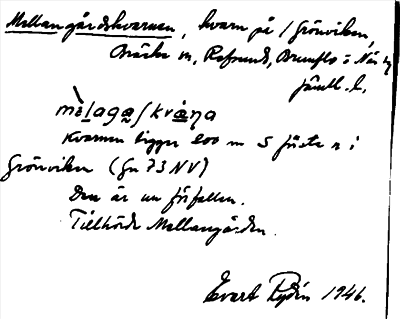 Mellangårdskvarnen, kvarn på /Grönviken,
Bräcke sn, Refsund, Brunflo o Näs tg
Jämtl. l.
Kvarnen ligger 200 m S första r i
Grönviken (Gn 73 NV)
Den är nu förfallen.
Tillhörde Mellangården.
Evert Rydén 1946.